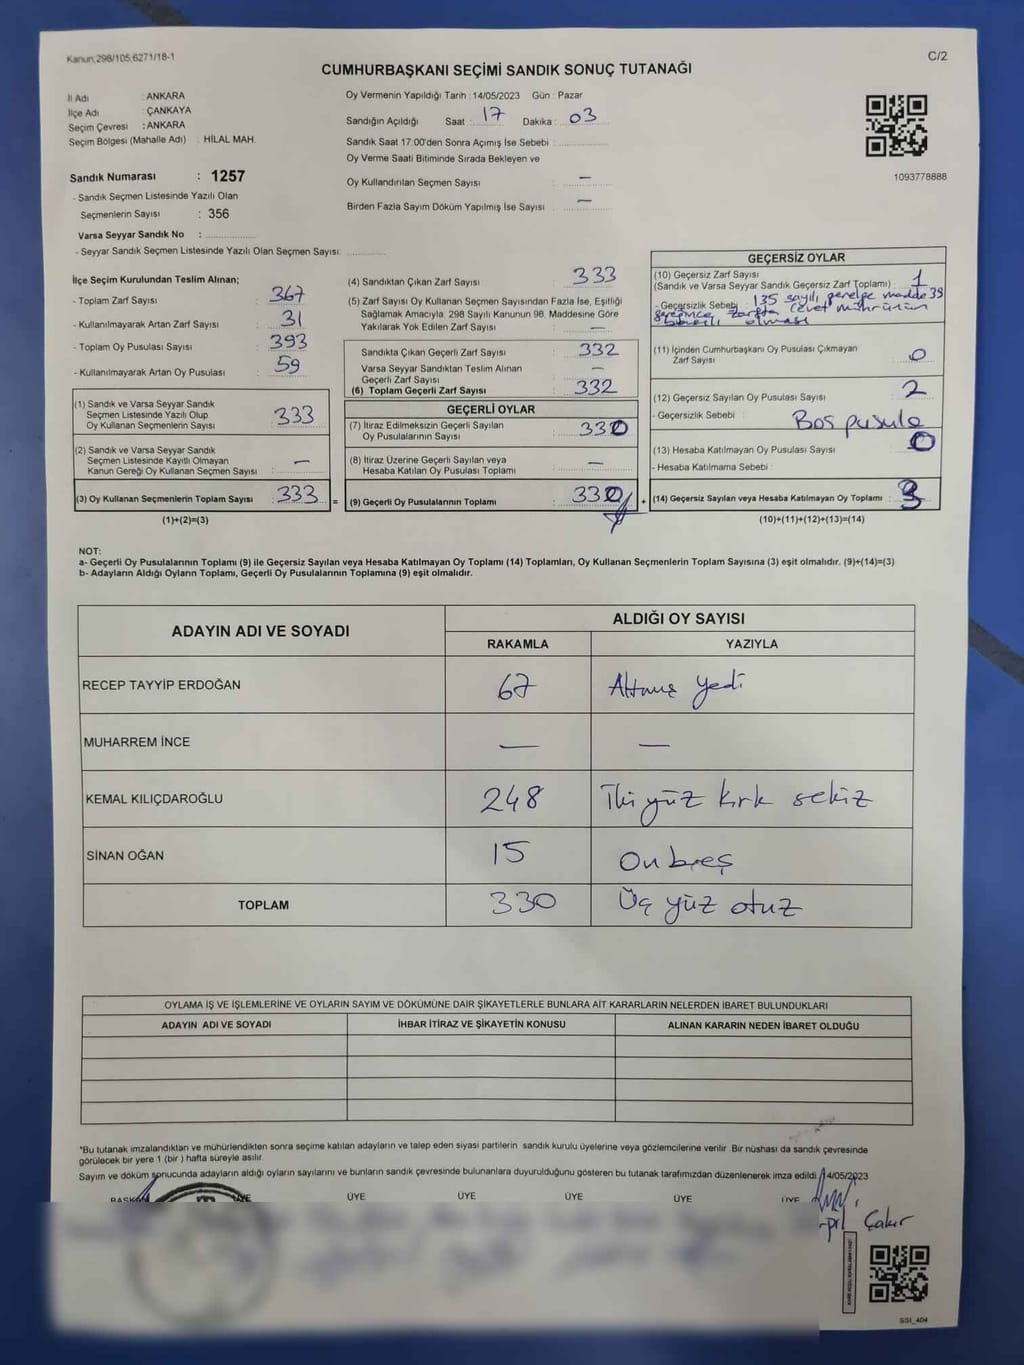 Kanun,298/105,6271/18-1
C/2
CUMHURBAŞKANI SEÇİMİ SANDIK SONUÇ TUTANAĞI
İl Adı : ANKARA
İlçe Adı : ÇANKAYA
Seçim Çevresi : ANKARA
Seçim Bölgesi (Mahalle Adı) : HİLAL MAH.
Sandık Numarası : 1257
- Sandık Seçmen Listesinde Yazılı Olan
Seçmenlerin Sayısı : 356
Varsa Seyyar Sandık No :
- Seyyar Sandık Seçmen Listesinde Yazılı Olan Seçmen Sayısı:
Oy Vermenin Yapıldığı Tarih : 14/05/2023 Gün : Pazar
Sandığın Açıldığı Saat : 17 Dakika : 03
Sandık Saat 17:00'den Sonra Açımış İse Sebebi :
Oy Verme Saati Bitiminde Sırada Bekleyen ve
Oy Kullandırılan Seçmen Sayısı : —
Birden Fazla Sayım Döküm Yapılmış İse Sayısı : —
1093778888
İlçe Seçim Kurulundan Teslim Alınan;
- Toplam Zarf Sayısı : 367
- Kullanılmayarak Artan Zarf Sayısı : 31
- Toplam Oy Pusulası Sayısı : 393
- Kullanılmayarak Artan Oy Pusulası : 59
(1) Sandık ve Varsa Seyyar Sandık
Seçmen Listesinde Yazılı Olup
Oy Kullanan Seçmenlerin Sayısı : 333
(2) Sandık ve Varsa Seyyar Sandık
Seçmen Listesinde Kayıtlı Olmayan
Kanun Gereği Oy Kullanan Seçmen Sayısı : —
(3) Oy Kullanan Seçmenlerin Toplam Sayısı : 333 =
(1)+(2)=(3)
(4) Sandıktan Çıkan Zarf Sayısı : 333
(5) Zarf Sayısı Oy Kullanan Seçmen Sayısından Fazla İse, Eşitliği
Sağlamak Amacıyla, 298 Sayılı Kanunun 98. Maddesine Göre
Yakılarak Yok Edilen Zarf Sayısı : —
Sandıkta Çıkan Geçerli Zarf Sayısı : 332
Varsa Seyyar Sandıktan Teslim Alınan
Geçerli Zarf Sayısı : —
(6) Toplam Geçerli Zarf Sayısı : 332
GEÇERLİ OYLAR
(7) İtiraz Edilmeksizin Geçerli Sayılan
Oy Pusulalarının Sayısı : 330
(8) İtiraz Üzerine Geçerli Sayılan veya
Hesaba Katılan Oy Pusulası Toplamı : —
(9) Geçerli Oy Pusulalarının Toplamı : 330 +
GEÇERSİZ OYLAR
(10) Geçersiz Zarf Sayısı
(Sandık ve Varsa Seyyar Sandık Geçersiz Zarf Toplamı) : 1
- Geçersizlik Sebebi : 135 sayılı genelge madde 39
gereğince zarfta Evet mührünün
olması
(11) İçinden Cumhurbaşkanı Oy Pusulası Çıkmayan
Zarf Sayısı : 0
(12) Geçersiz Sayılan Oy Pusulası Sayısı : 2
- Geçersizlik Sebebi : Boş pusula
(13) Hesaba Katılmayan Oy Pusulası Sayısı : 0
- Hesaba Katılmama Sebebi :
(14) Geçersiz Sayılan veya Hesaba Katılmayan Oy Toplamı : 3
(10)+(11)+(12)+(13)=(14)
NOT:
a- Geçerli Oy Pusulalarının Toplamı (9) ile Geçersiz Sayılan veya Hesaba Katılmayan Oy Toplamı (14) Toplamları, Oy Kullanan Seçmenlerin Toplam Sayısına (3) eşit olmalıdır. (9)+(14)=(3)
b- Adayların Aldığı Oyların Toplamı, Geçerli Oy Pusulalarının Toplamına (9) eşit olmalıdır.
ADAYIN ADI VE SOYADI
ALDIĞI OY SAYISI
RAKAMLA YAZIYLA
RECEP TAYYİP ERDOĞAN 67 Altmış yedi
MUHARREM İNCE — —
KEMAL KILIÇDAROĞLU 248 İki yüz kırk sekiz
SİNAN OĞAN 15 On beş
TOPLAM 330 Üç yüz otuz
OYLAMA İŞ VE İŞLEMLERİNE VE OYLARIN SAYIM VE DÖKÜMÜNE DAİR ŞİKAYETLERLE BUNLARA AİT KARARLARIN NELERDEN İBARET BULUNDUKLARI
ADAYIN ADI VE SOYADI İHBAR İTİRAZ VE ŞİKAYETİN KONUSU ALINAN KARARIN NEDEN İBARET OLDUĞU
*Bu tutanak imzalandıktan ve mühürlendikten sonra seçime katılan adayların ve talep eden siyasi partilerin sandık kurulu üyelerine veya gözlemcilerine verilir. Bir nüshası da sandık çevresinde
görülecek bir yere 1 (bir ) hafta süreyle asılır.
Sayım ve döküm sonucunda adayların aldığı oyların sayılarını ve bunların sandık çevresinde bulunanlara duyurulduğunu gösteren bu tutanak tarafımızdan düzenlenerek imza edildi. 14/05/2023
BAŞKAN ÜYE ÜYE ÜYE ÜYE ÜYE ÜYE
Çakır
SSI_404